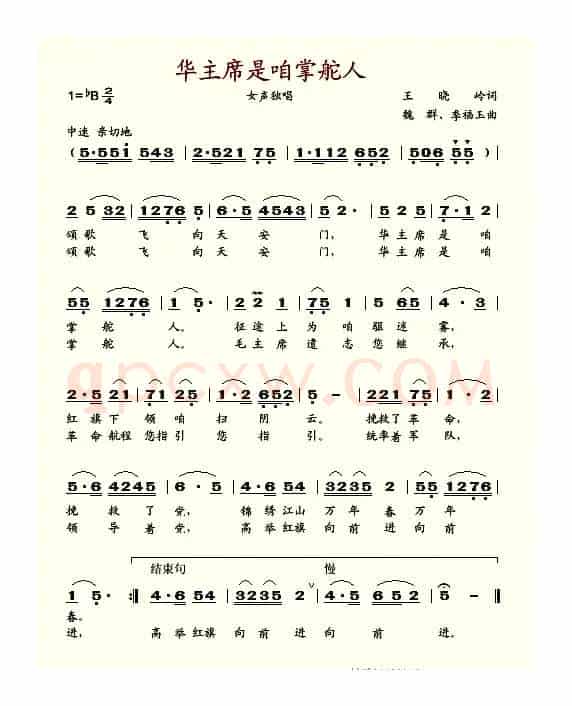 华主席是咱掌舵人
1=♭B 2/4 女声独唱 王 晓 岭词
魏 群、李福玉曲
中速 亲切地
( 5·551 543 | 2·521 75 | 1·112 652 | 506 55 )
2 5 32 | 1276 5 | 6·5 4543 | 5 2· | 2 5 2 | 7·1 2
颂歌 飞 向天 安 门, 华主席是 咱
颂歌 飞 向天 安 门, 华主席是 咱
55 1276 | 1 5· | 2 22 1 | 75 1 | 5 65 | 4·3
掌 舵 人。 征途上为 咱 驱迷 雾,
掌 舵 人。 毛主席遗 志您继 承,
2·5 21 | 71 25 | 2·6 652 | 5 - | 221 75 | 1·2
红旗下 领咱 扫 阴 云。 挽救了革 命,
革命航程 您指引 您 指 引。 统率着军 队,
5·6 4245 | 6·5 | 4·6 54 | 3235 2 | 55 1276
挽 救 了 党, 锦 绣江山 万年 春万 年
领 导 着 党, 高 举红旗 向前 进向 前
结束句 慢
1 5· :‖ 4·6 54 | 3235 2 ∨ | 4·5 652 | 5 - ‖
春。
进, 高 举红旗 向 前 进向 前 进。
qpcxw.COM